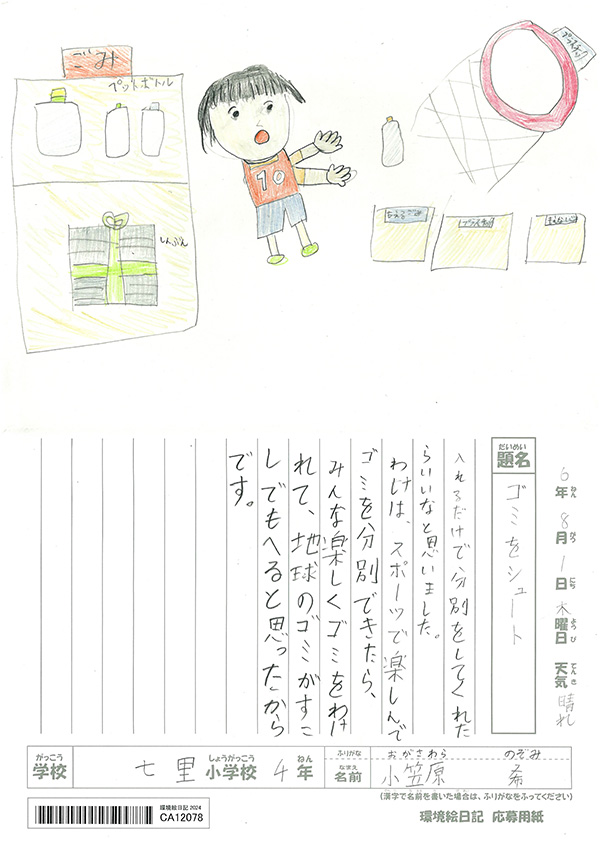 ごみ
ペットボトル
しんぶん
10
プラスチック
もえるごみ
プラスチック
もえないごみ
6年 8月 1日 木曜日 天気 晴れ
ねん がつ にち ようび てんき
だいめい
題名
ゴミをシュート
入れるだけで分別をしてくれた
らいいなと思いました。
わけは、スポーツで楽しんで
ゴミを分別できたら、
みんな楽しくゴミをわけ
れて、地球のゴミがすこ
しでもへると思ったから
です。
がっこう
学校
七里
しょうがっこう
小学校
4年
ねん
ふりがな
おがさわら のぞみ
なまえ
名前
小笠原 希
(漢字で名前を書いた場合は、ふりがなをふってください)
環境絵日記 2024
CA12078
環境絵日記 応募用紙